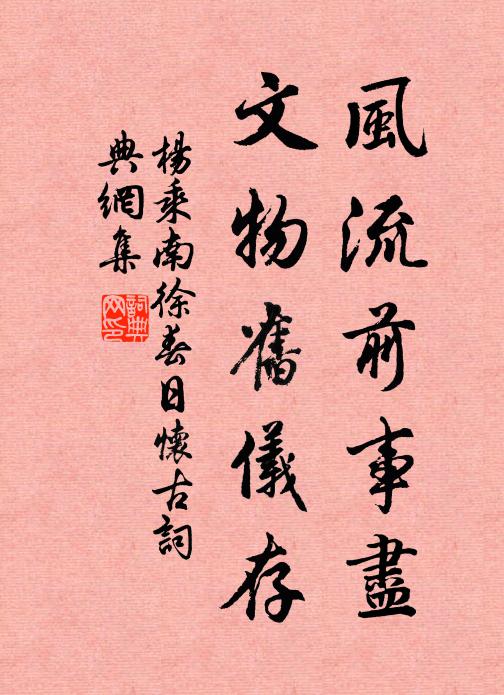 風流前事盡
文物舊儀存
楊乘南徐春日懷古詞
典網集
詞典
网印